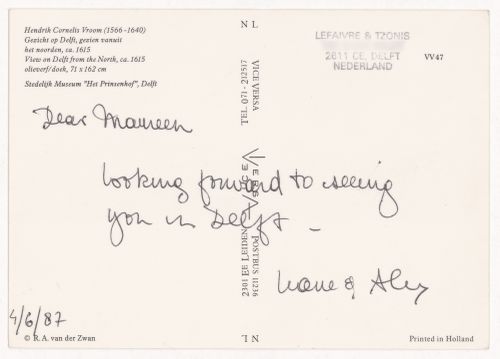 Hendrik Cornelis Vroom (1566-1640)
Gezicht op Delft, gezien vanuit
het noorden, ca. 1615
View on Delft from the North, ca. 1615
olieverf/doek, 71 x 162 cm
Stedelijk Museum "Het Prinsenhof", Delft
NL
LEFAIVRE & TZONIS
2611 CE, DELFT
NEDERLAND
VV47
VICE VERSA
TEL 071-212517
Dear Maureen
looking forward to seeing
you in Delft –
& Alex
VICE
VERSA
POSTBUS 11236
2301 EE LEIDEN
4/6/87
© R. A. van der Zwan
NL
Printed in Holland